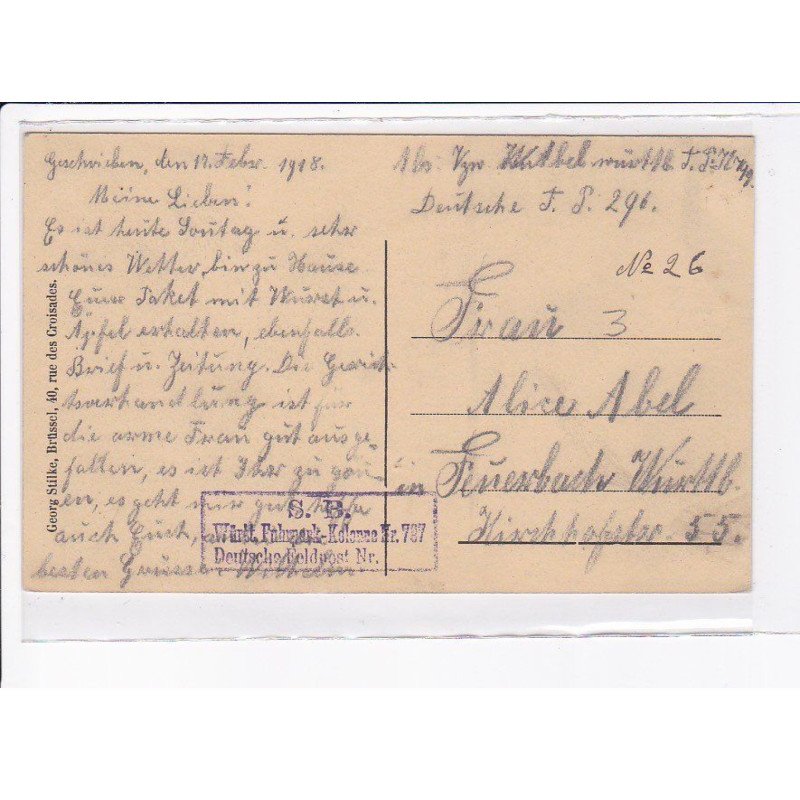 Geschrieben, den 17. Febr. 1918.
Meine Lieben!
Es ist heute Sonntag u. sehr
schönes Wetter, bin zu Hause
Euer Paket mit Wurst u.
Äpfel erhalten, ebenfalls
Brief u. Zeitung. Die Gerich-
tsverhandlung ist für
die arme Frau gut ausge-
fallen, es ist Ihr zu gön-
en, es geht mir gut, hoffe
auch Euch,
besten Grüssen Wilhelm
Georg Stilke, Brüssel, 40, rue des Croisades.
Abs. Vzw. Abel württb. F. P. K.
Deutsche F. P. 291.
No 26
Frau
3
Alice Abel
in Feuerbach Württb.
Kirchhofstr. 55.
S. B.
Württ. Fuhrpark-Kolonne Nr. 787
Deutsche Feldpost Nr.